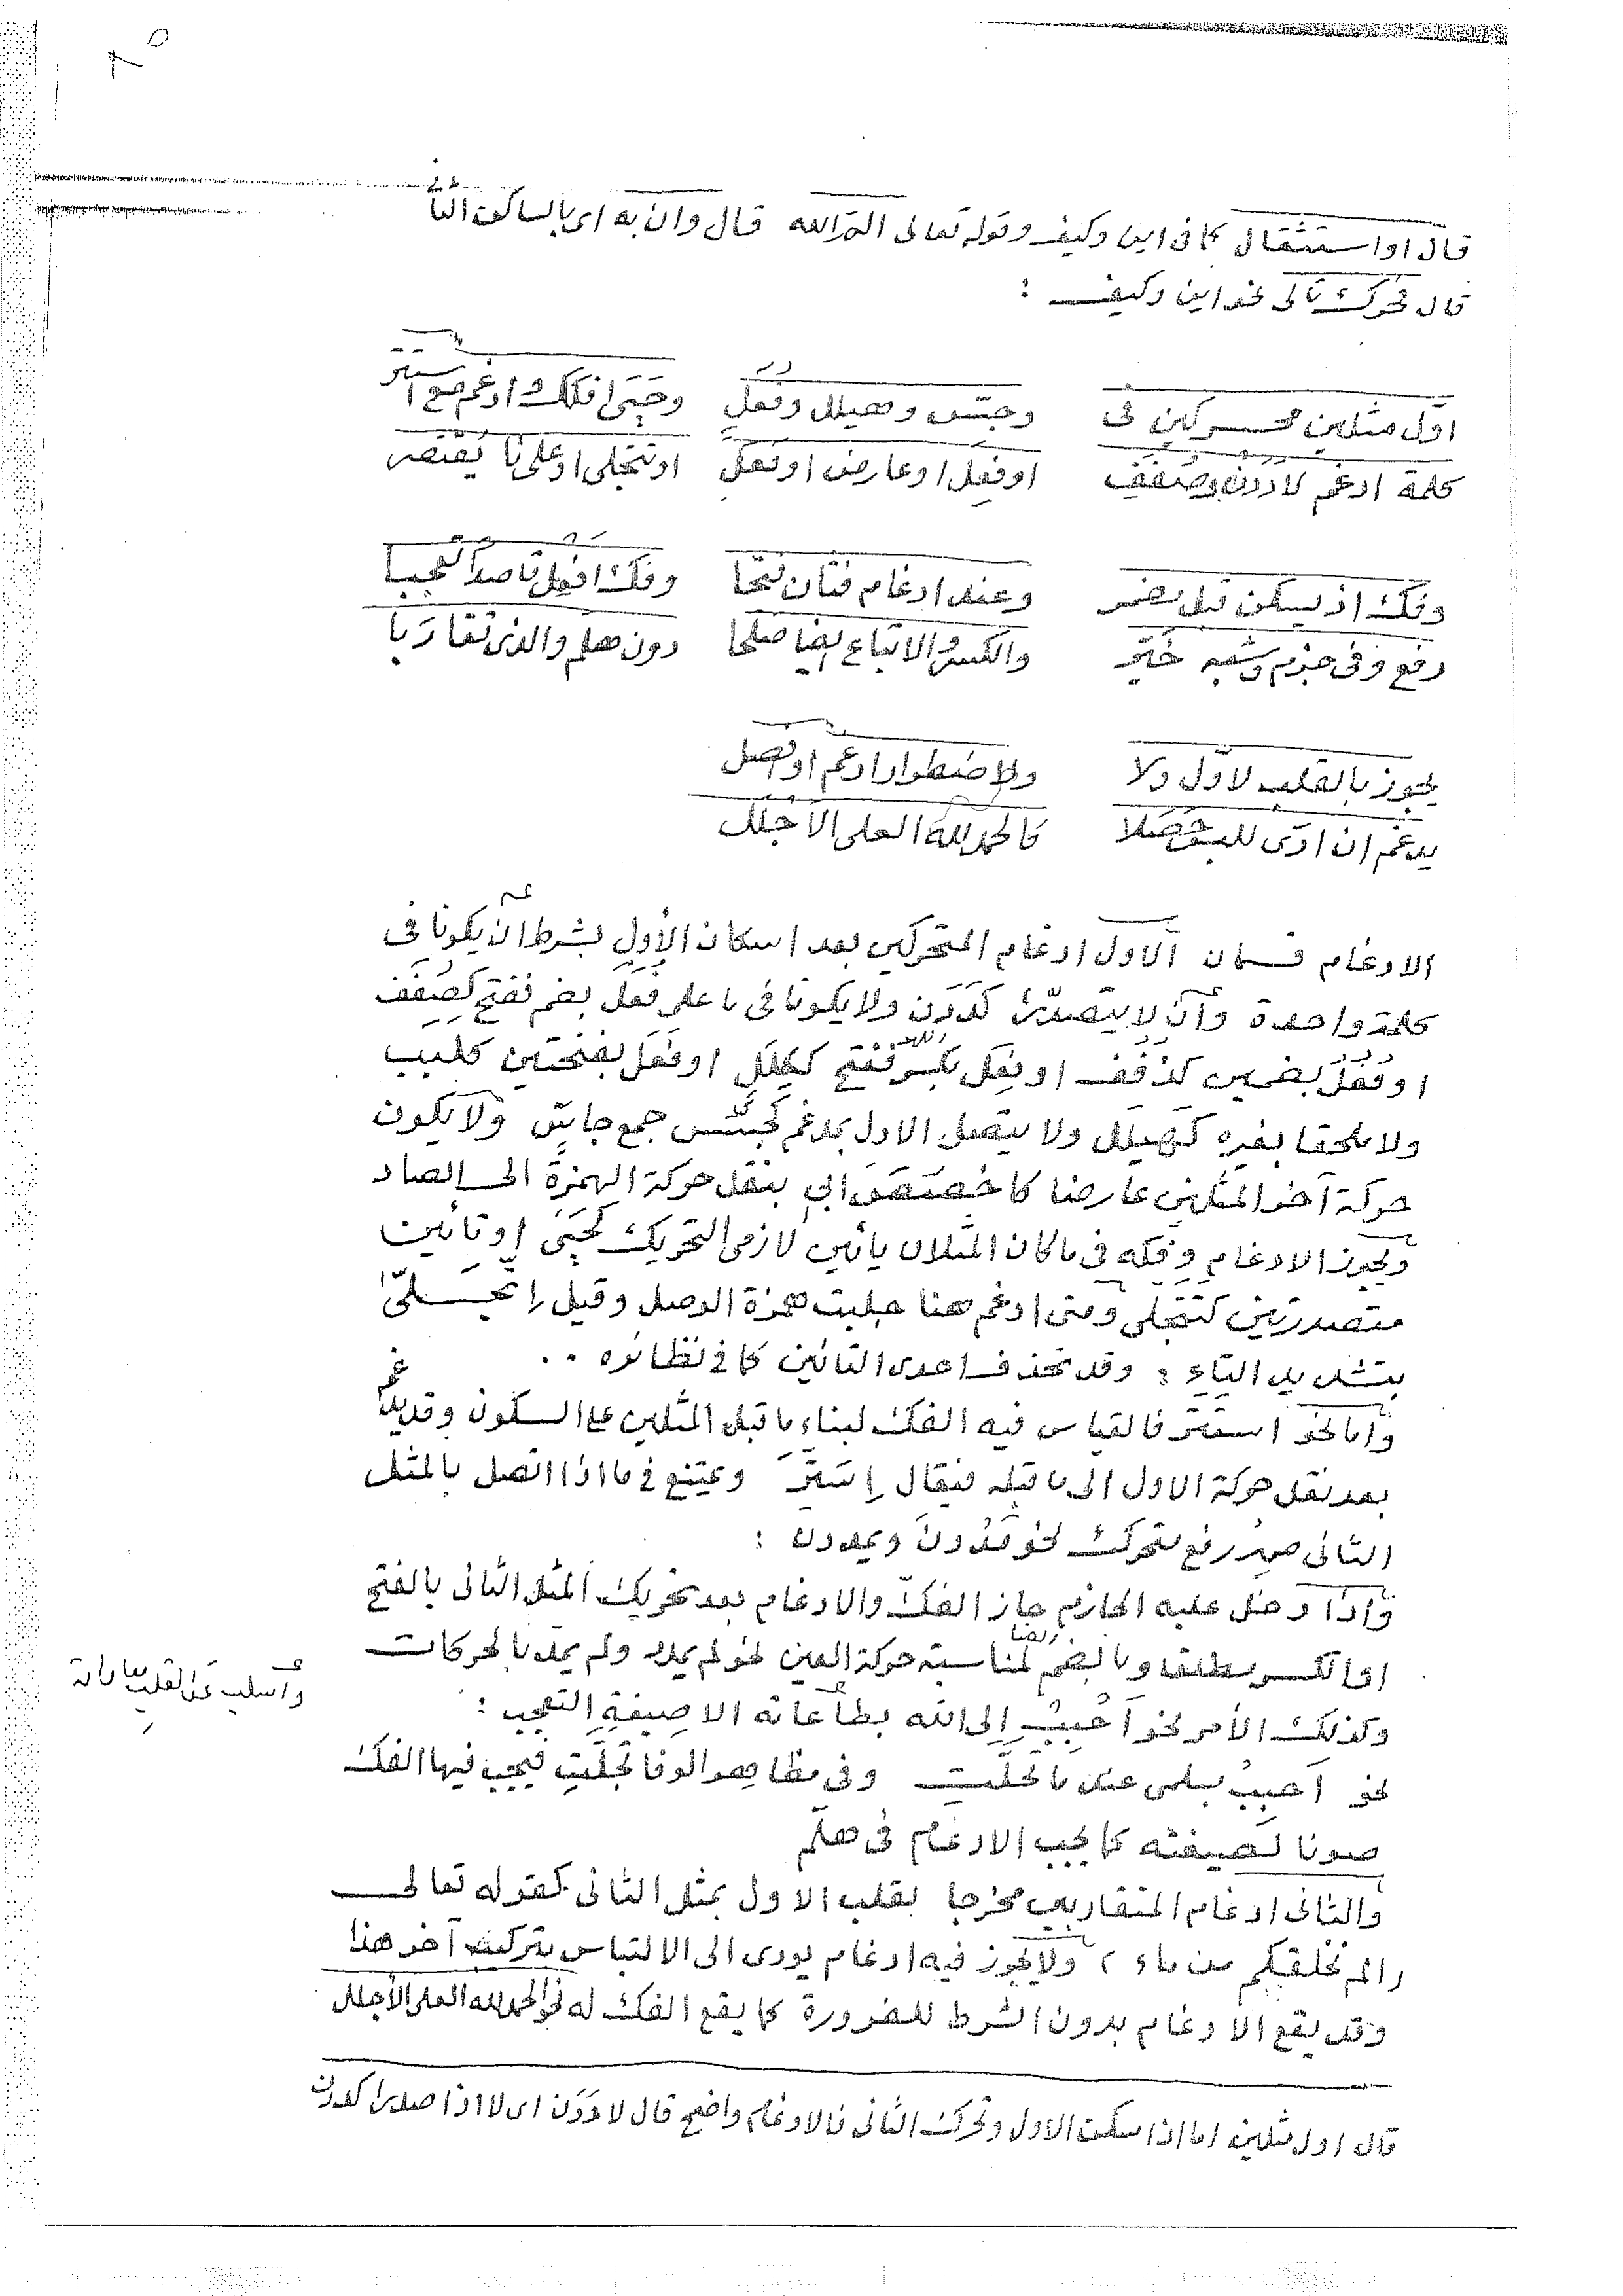 ٨٥
قال او استثقال كما فى اين وكيف وقوله تعالى الم الله قال وان به اى بالساكن الثانى
قال تحرك تالى نحو اين وكيف :
اوّل مثلين محركين فى وجسّس وهيلل وفعل وحَيِىَ افكك وادغم مع استتر
كلمة ادغم لا ددن وصُفَفِ اوفِعَل او عارض او فَعَل او تتجلى او على تا يقتصر
وفك اذ يسكن قبل مضمر وعند ادغام فثان فتحا وفك افعل قاصدا تعجبا
رفع وفى جزم وشبه خيّر والكسر والاتباع ايضا صلحا دون هلم والذى تقاربا
يجوز بالقلب لاوّل ولا ولاضطرار ادغم او افصل
يدغم ان ادّى للبس حصلا كالحمد لله العلى الاجلل
الادغام قسمان الاول ادغام المتحركين بعد اسكان الأول بشرط ان يكونا فى
كلمة واحدة وان لا يتصدّرا كدَدَن ولا يكونا فى ما على فُعَل بضم ففتح كصُفَف
او فُعُل بضمين كذُفُف او فِعَل بكسر ففتح ككِلَل او فَعَل بفتحتين كلبب
ولا ملحقا بغيره كهيلل ولا يتصل الاول بمدغم كجسّس جمع جاسّ ولا يكون
حركة آخر المثلين عارضا كاخصص ابى بنقل حركة الهمزة الى الصاد
ويجوز الادغام وفكه فى ما كان المثلان يائين لازمى التحريك كحَيِىَ او تائين
متصدرتين كتتجلى ومتى ادغم هنا جلبت همزة الوصل وقيل اتّجلّى
بتشديد التاء : وقد تحذف احدى التائين كما فى نظائره ..
واما نحو استتر فالقياس فيه الفك لبناء ما قبل المثلين على السكون وقد يدغم
بعد نقل حركة الاول الى ما قبله فيقال سَتّرَ ويمتنع فى ما اذا اتصل بالمثل
الثانى ضمير رفع متحرك نحو مددن ويمددن :
واذا دخل عليه الجازم جاز الفك والادغام بعد تحريك المثل الثانى بالفتح
او الكسر مطلقا وبالضم ايضا لمناسبة حركة العين نحو لم يمدد ولم يمد بالحركات
وكذلك الأمر نحو أحبب إلى الله بطاعاته الا صيغة التعجب :
نحو أحبب بسلمى عند ما تحلّت وفى مظاهر الوفا تجلّت فيجب فيها الفك
صونا لصيغته كما يجب الادغام فى هلمّ
والثانى ادغام المتقاربين مخرجا بقلب الاول بمثل الثانى كقوله تعالى
( الم نخلقكم من ماء ) ولا يجوز فيه ادغام يودى الى الالتباس بتركيب آخر هذا
وقد يقع الادغام بدون الشرط للضرورة كما يقع الفك له نحو الحمد لله العلى الأجلل
قال اول مثلين اما اذا سكن الاول وتحرك الثانى فالادغام واضح قال لا دَدَن اى لا اذا صدرا كددن